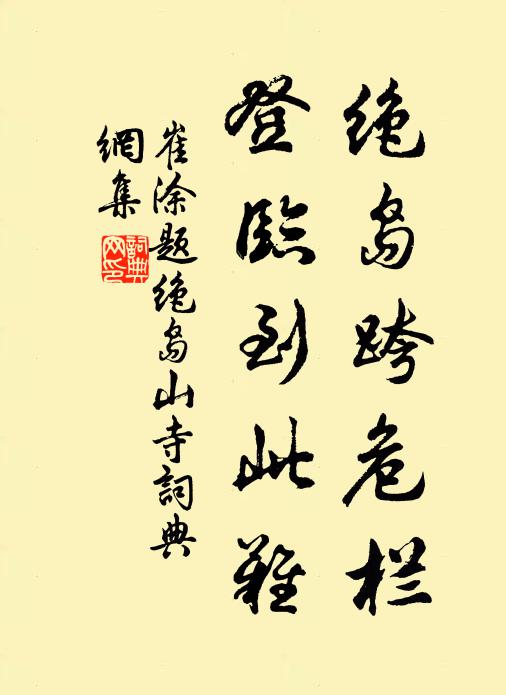 绝岛跨危栏
登临到此难
崔涂题绝岛山寺詞典
網集
詞典网印